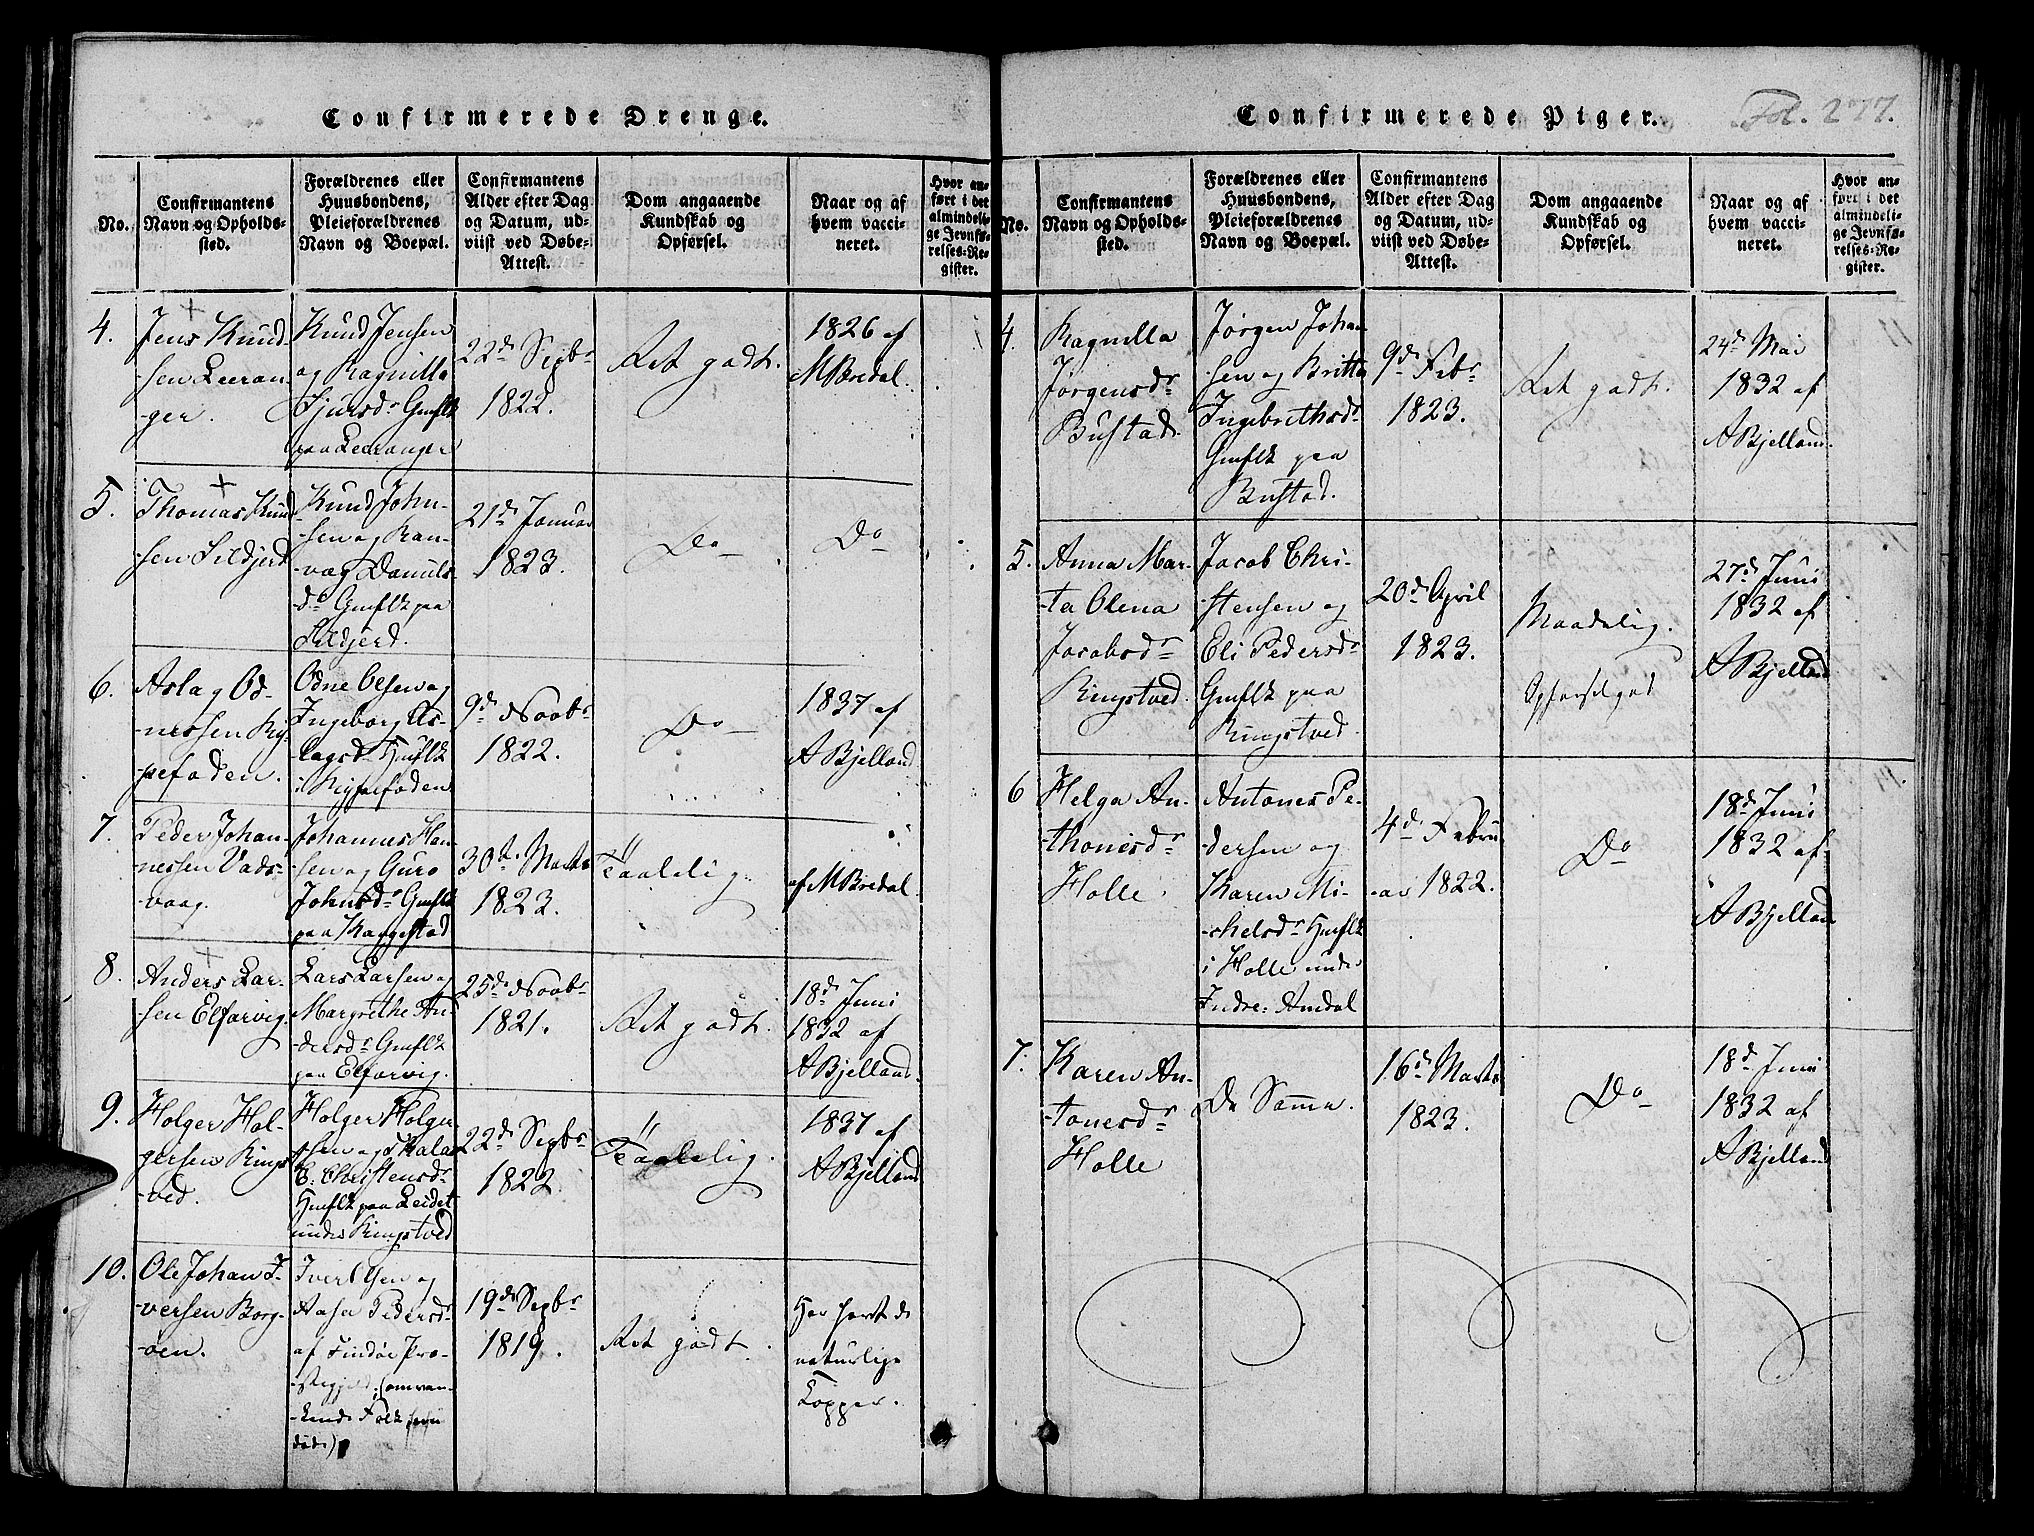 Confirmerede Drenge.
No.
Confirmantens
Navn og Opholds-
sted.
Forældrenes eller
Huusbondens,
Pleieforældrenes
Navn og Boepæl.
Confirmantens
Alder efter Dag
og Datum, ud-
viist ved Døbe-
Attest.
Dom angaaende
Kundskab og
Opførsel.
Naar og af
hvem vacci-
neret.
Hvor an-
ført i det
almindeli-
ge Jevnfø-
relses-Re-
gister.
4.
Jens Knud-
sen Leeran-
ger.
Knud Jensen
og Ragnilla
Sjursdr Gmflk
paa Leeranger
22d Sepbr
1822.
Ret godt.
1826 af
M Bredal.
5.
Thomas Knud
sen Sildjerd
Knud John-
sen og Ran-
væg Daniels-
dr Gmflk paa
Sildjerd.
21d Januar
1823.
Do
Do
6.
Aslag Od-
nessen Ry-
pefaden.
Odne Olsen og
Ingeborg As-
lagsdr Hmflk
i Rypefaden
9d Novbr
1822.
Do
1837 af
A Bjelland
7.
Peder Johan-
nessen Vads-
vaag.
Johannes Han-
sen og Guro
Johnsdr Gmflk
paa Kaggestad
30te Marts
1823.
Taalelig
af M Bredal
8.
Anders Lar-
sen Elfarvig.
Lars Larsen og
Margrethe An-
dersdr Gmflk
paa Elfarvig.
25d Novbr
1821.
Ret godt.
18d Juni
1832 af
A Bjelland.
9.
Holger Hol-
gersen Rings
-ved.
Holger Holger
sen og
E. Christensdr
Hmflk paa Leidet
under Ringstved
22d Sepbr
1822.
Taalelig.
1837 af
A Bjelland
10.
Ole Johan I-
versen Borg-
øen.
Iver Olsen og
Aasa Pedersdr
af Findøe Præ-
stegjeld. (omvan-
kende Folk
døde)
19d Sepbr
1819.
Ret godt.
Har havt de
naturlige
Kopper.
Confirmerede Piger.
Fol. 277.
No.
Confirmantens
Navn og Opholds-
sted.
Forældrenes eller
Huusbondens,
Pleieforældrenes
Navn og Boepæl.
Confirmantens
Alder efter Dag
og Datum, ud-
viist ved Døbe-
Attest.
Dom angaaende
Kundskab og
Opførsel.
Naar og af
hvem vacci-
neret.
Hvor an-
ført i det
almindeli-
ge Jevnfø-
relses-Re-
gister.
4.
Ragnilla
Jørgensdr
Bustad.
Jørgen Johan-
sen og Britta
Ingebrethsdr
Gmflk paa
Bustad.
9d Febr
1823.
Ret godt.
24d Mai
1832 af
A Bjelland.
5.
Anna Mar-
ta Olena
Jacobsdr
Ringstved.
Jacob Chri-
stensen og
Eli Pedersdr
Gmflk paa
Ringstved.
20d April
1823.
Maadelig.
Opførsel god
27d Juni
1832 af
A Bjelland
6
Helga An-
thonesdr
Holle.
Antones Pe-
dersen og
Karen Mi-
chelsdr Hmflk
i Holle under
Indre: Amdal
4d Febru
ar 1822.
Do
18d Juni
1832 af
A Bjelland
7.
Karen An-
tonesdr
Holle
De Samme.
16d Marts
1823.
Do
18d Juni
1832 af
A Bjelland